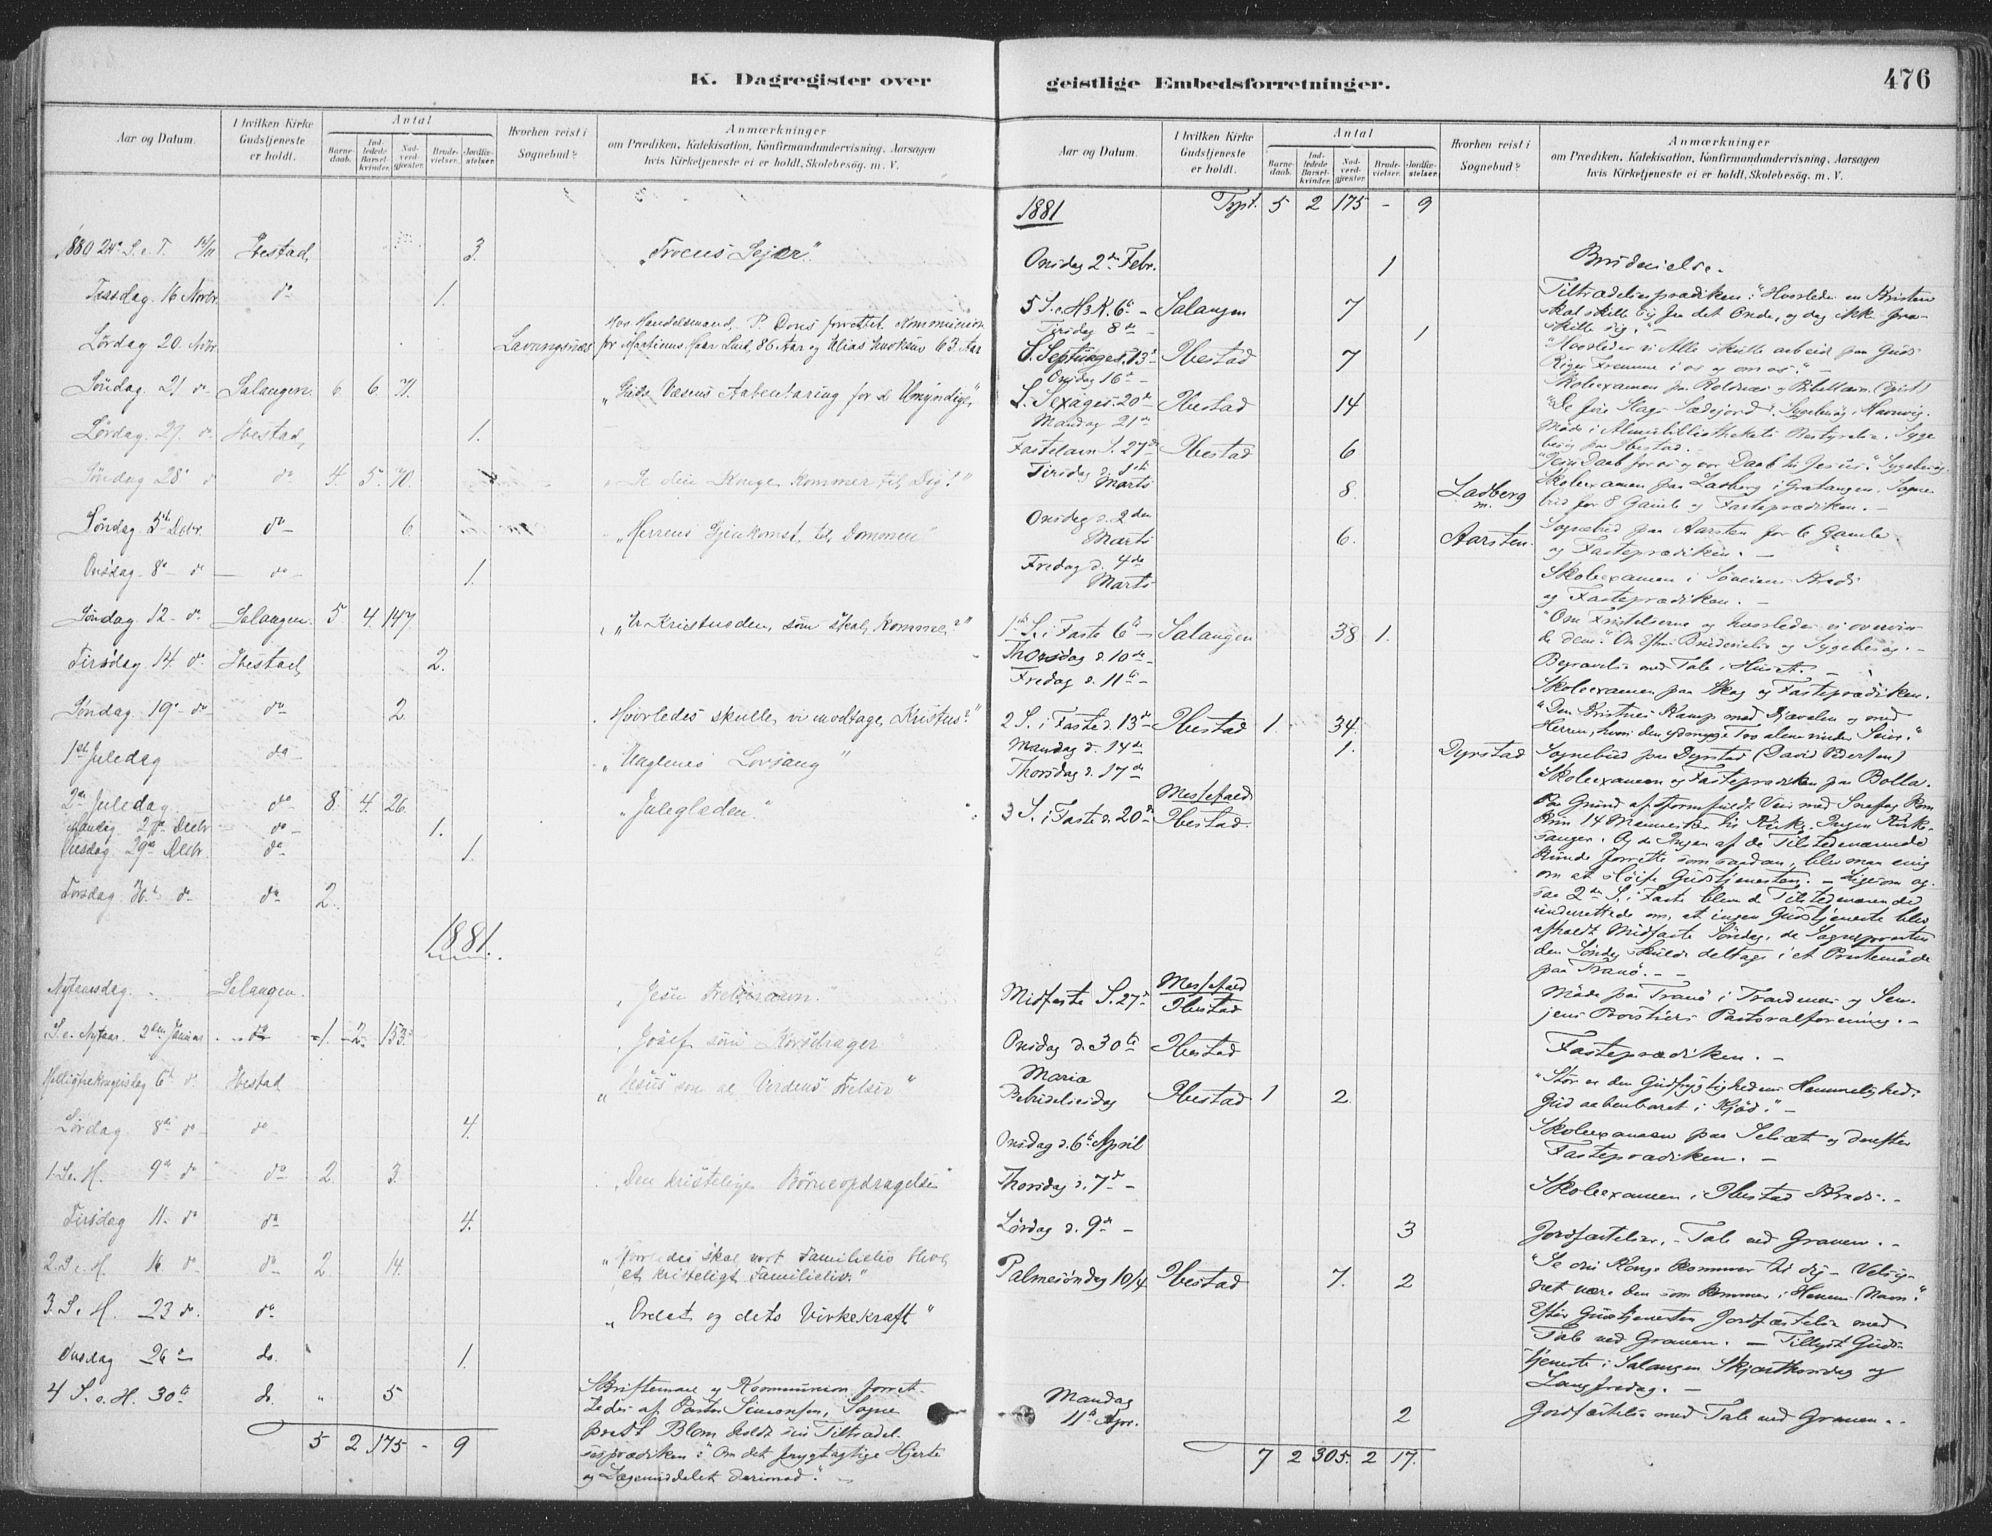 K. Dagregister over
Aar og Datum.
I hvilken Kirke Gudstjeneste er holdt.
Antal
Barnedaab.
Indledede Barselkvinder.
Nadverdgjester.
Brudevielser.
Jordfæstelser.
Hvorhen reist i Sognebud?
Anmærkninger
om Prædiken, Katekisation, Konfirmandundervisning, Aarsagen
hvis Kirketjeneste ei er holdt, Skolebesøg. m. V.
1880 24de S. e. T. 14/11 Ibestad, 3. „Troens Sejer“
Tirsdag 16 Novbr do 1.
Lørdag 20. Novr. Lavangsnæs Hos Handelsmand P. Dons forrettet Kommunion
for 86 Aar og Elias 63 Aar
Søndag 21 do Salangen 6 6 71. „Guds Væsens Aabenbaring for de Umyndige“
Lørdag 27. do Ibestad, 1.
Søndag 28 do do 4. 5. 70. „Se din Konge kommer til Dig!“
Søndag 5te Decbr. do 6. „Herrens Gjenkomst til Dommen“
Onsdag 8de do do 1.
Søndag 12 do Salangen. 5 4. 147. „Er Kristus den, som skal komme?“
Tirsdag 14. do Ibestad, 2.
Søndag 19de do do 2. Hvorledes skulle vi modtage Kristus?“
1ste Juledag do „Englenes Lovsang“
2den Juledag do 8. 4. 26. „Juleglæden.“
Mandag 27de Decbr. do 1.
Onsdag 29de Decbr. do 1.
Torsdag 30te do do 2.
1881.
Nytaarsdag. Salangen. „Jesu Frelsernavn.“
S. e. Nytaar 2den Januar do 1. 2. 153. „Josef som Korsdrager
Helligtrekongersdag 6te do Ibestad „Jesus som al Verdens Frelser“
Lørdag 8de do 4.
1. S. e. H. 9de do do 2. 3. „Den kristelige Børneopdragelse“
Tirsdag 11. do do 4.
2. S. e. H. 16 do do 2. 14. „Hvorledes skal vort Familieliv blive
et kristeligt Familieliv.“
3. S. e. H. 23 do. do „Ordet og dets Virkekraft“
Onsdag 26de do. 1.
4 S. e. H. 30te do. „ 5 Skriftemaal og Kommunion forret-
tedes af Pastor Simonsen, Sogne
præst Blom holdt sin Tiltrædel-
sesprædiken: „Om det frygtagtige Hjerte
og Lægemiddelet derimod“. —
5 2 175 - 9
geistlige Embedsforretninger.
476
Aar og Datum.
I hvilken Kirke Gudstjeneste er holdt.
Antal
Barnedaab.
Indledede Barselkvinder.
Nadverdgjester.
Brudevielser.
Jordfæstelser.
Hvorhen reist i Sognebud?
Anmærkninger
om Prædiken, Katekisation, Konfirmandundervisning, Aarsagen
hvis Kirketjeneste ei er holdt, Skolebesøg. m. V.
1881 Trpt. 5 2 175 - 9
Onsdag 2den Febr. 1 Brudevielse.
5 S. e. H3K. 6te Salangen 7 Tiltrædelsesprædiken: "Hvorledes en Kristen
skal skille sig fra det Onde, og dog ikke fra-
Tirsdag 8de 1 skille sig."
S. Septuages. 13de Ibestad 7 "Hvorledes vi Alle skulle arbeide paa Guds
Riges Fremme i os og om os." —
Onsdag 16de Skoleexamen paa Roldnæs og
S. Sexages. 20de Ibestad 14 "De fire Slags Sædejord". Sygebesøg i Hamnvig.
Mandag 21de Møde i Almuebibliothekets Bestyrelse. Syge-
besøg paa Ibestad.
Fastelavn S. 27de Ibestad 6 "Jesu Daab for os og vor Daab til Jesus." Sygebesøg
Tirsdag d. 1ste Marts 8. Ladberg m. Skoleexamen paa Ladberg i Gratangen. Sogne-
bud for 8 Gamle og Fasteprædiken. —
Onsdag d. 2den Marts 6. Aarsten. Sognebud paa Aarsten for 6 Gamle
og Fasteprædiken. —
Fredag d. 4de Marts Skoleexamen i Kreds
og Fasteprædiken. —
1ste S. i Faste 6te Salangen 38 1. "Om Fristelserne og hvorledes vi overvin-
de dem." Om Eftm. Brudevielse og Sygebesøg. —
Thorsdag d. 10de Begravelse med Tale i Huset. —
Fredag d. 11te Skoleexamen paa Skog og Fasteprædiken.
2 S. i Faste d. 13de Ibestad 1. 34. "Den Kristnes Kamp med Djævelen og med
Herren, hvori den ydmyge Tro alene vinder Seier."
Mandag d. 14de 1. Dyrstad Sognebud paa Dyrstad (David Pedersen)
Thorsdag d. 17de Skoleexamen og Fasteprædiken paa Bolla.
3 S. i Faste d. 20de Messefald Ibestad. Paa Grund af stormfuldt Veir med Snefog kom
kun 14 Mennesker til Kirke. Ingen Kirke-
sanger. Og da Ingen af de Tilstedeværende
kunde forrette som saadan, blev man enig
om at sløife Gudstjenesten. — Ligesom og-
saa 2den S. i Faste bleve de Tilstedeværende
underrettede om, at ingen Gudstjeneste blev
afholdt Midfaste Søndag, da Sognepræsten
den Søndag skulde deltage i et Præstemøde
paa Tranø. —
Midfaste S. 27de Messefald Ibestad Møde paa Tranø i Trondenæs og Sen-
jens Provstiers Pastoralforening. —
Onsdag d. 30te Ibestad Fasteprædiken. —
Maria Bebudelsesdag Ibestad 1 2. "Stor er den Gudfrygtighedens Hemmelighed:
Gud aabenbaret i Kjød." —
Onsdag d. 6te April Skoleexamen paa Selsæt og derefter
Fasteprædiken. —
Thorsdag d. 7de — Skoleexamen i Ibestad Kreds. —
Lørdag d. 9de — 3 Jordfæstelser. — Tale ved Graven. —
Palmesøndag 10/4 Ibestad 7. 2 "Se din Konge kommer til dig — Velsig-
net være den som kommer i Herrens Navn."
Efter Gudstjenesten Jordfæstelse med
Tale ved Graven. — Tillyst Guds-
tjeneste i Salangen Skjærthorsdag og
Langfredag. —
Mandag 11te Apr. 2 Jordfæstelse med Tale ved Graven. —
7 2 305. 2 17.